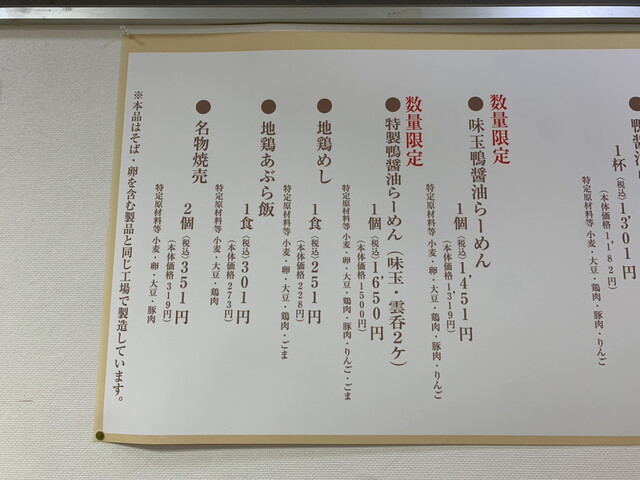 ●鴨醤油
1杯(税込)1,301円
(本体価格1,182円)
特定原材料等 小麦・卵・大豆・鶏肉・豚肉・りんご
数量限定
●味玉鴨醤油らーめん
1個(税込)1,451円
(本体価格1,319円)
特定原材料等 小麦・卵・大豆・鶏肉・豚肉・りんご
数量限定
●特製鴨醤油らーめん(味玉・雲呑2ケ)
1個(税込)1,650円
(本体価格1500円)
特定原材料等 小麦・卵・大豆・鶏肉・豚肉・りんご・ごま
●地鶏めし
1食(税込)251円
(本体価格228円)
特定原材料等 小麦・卵・大豆・鶏肉・ごま
●地鶏あぶら飯
1食(税込)301円
(本体価格273円)
特定原材料等 小麦・大豆・鶏肉
●名物焼売
2個(税込)351円
(本体価格319円)
特定原材料等 小麦・卵・大豆・豚肉
※本品はそば・卵を含む製品と同じ工場で製造しています。